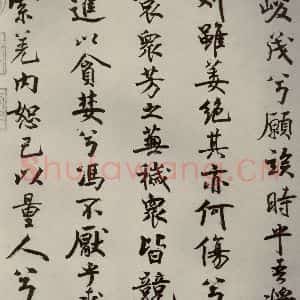 峻茂兮願竢時乎吾將
刈雖萎絕其亦何傷兮
哀衆芳之蕪穢衆皆競
進以貪婪兮馮不厭乎
索羌內恕己以量人兮
Shufawang.Cn